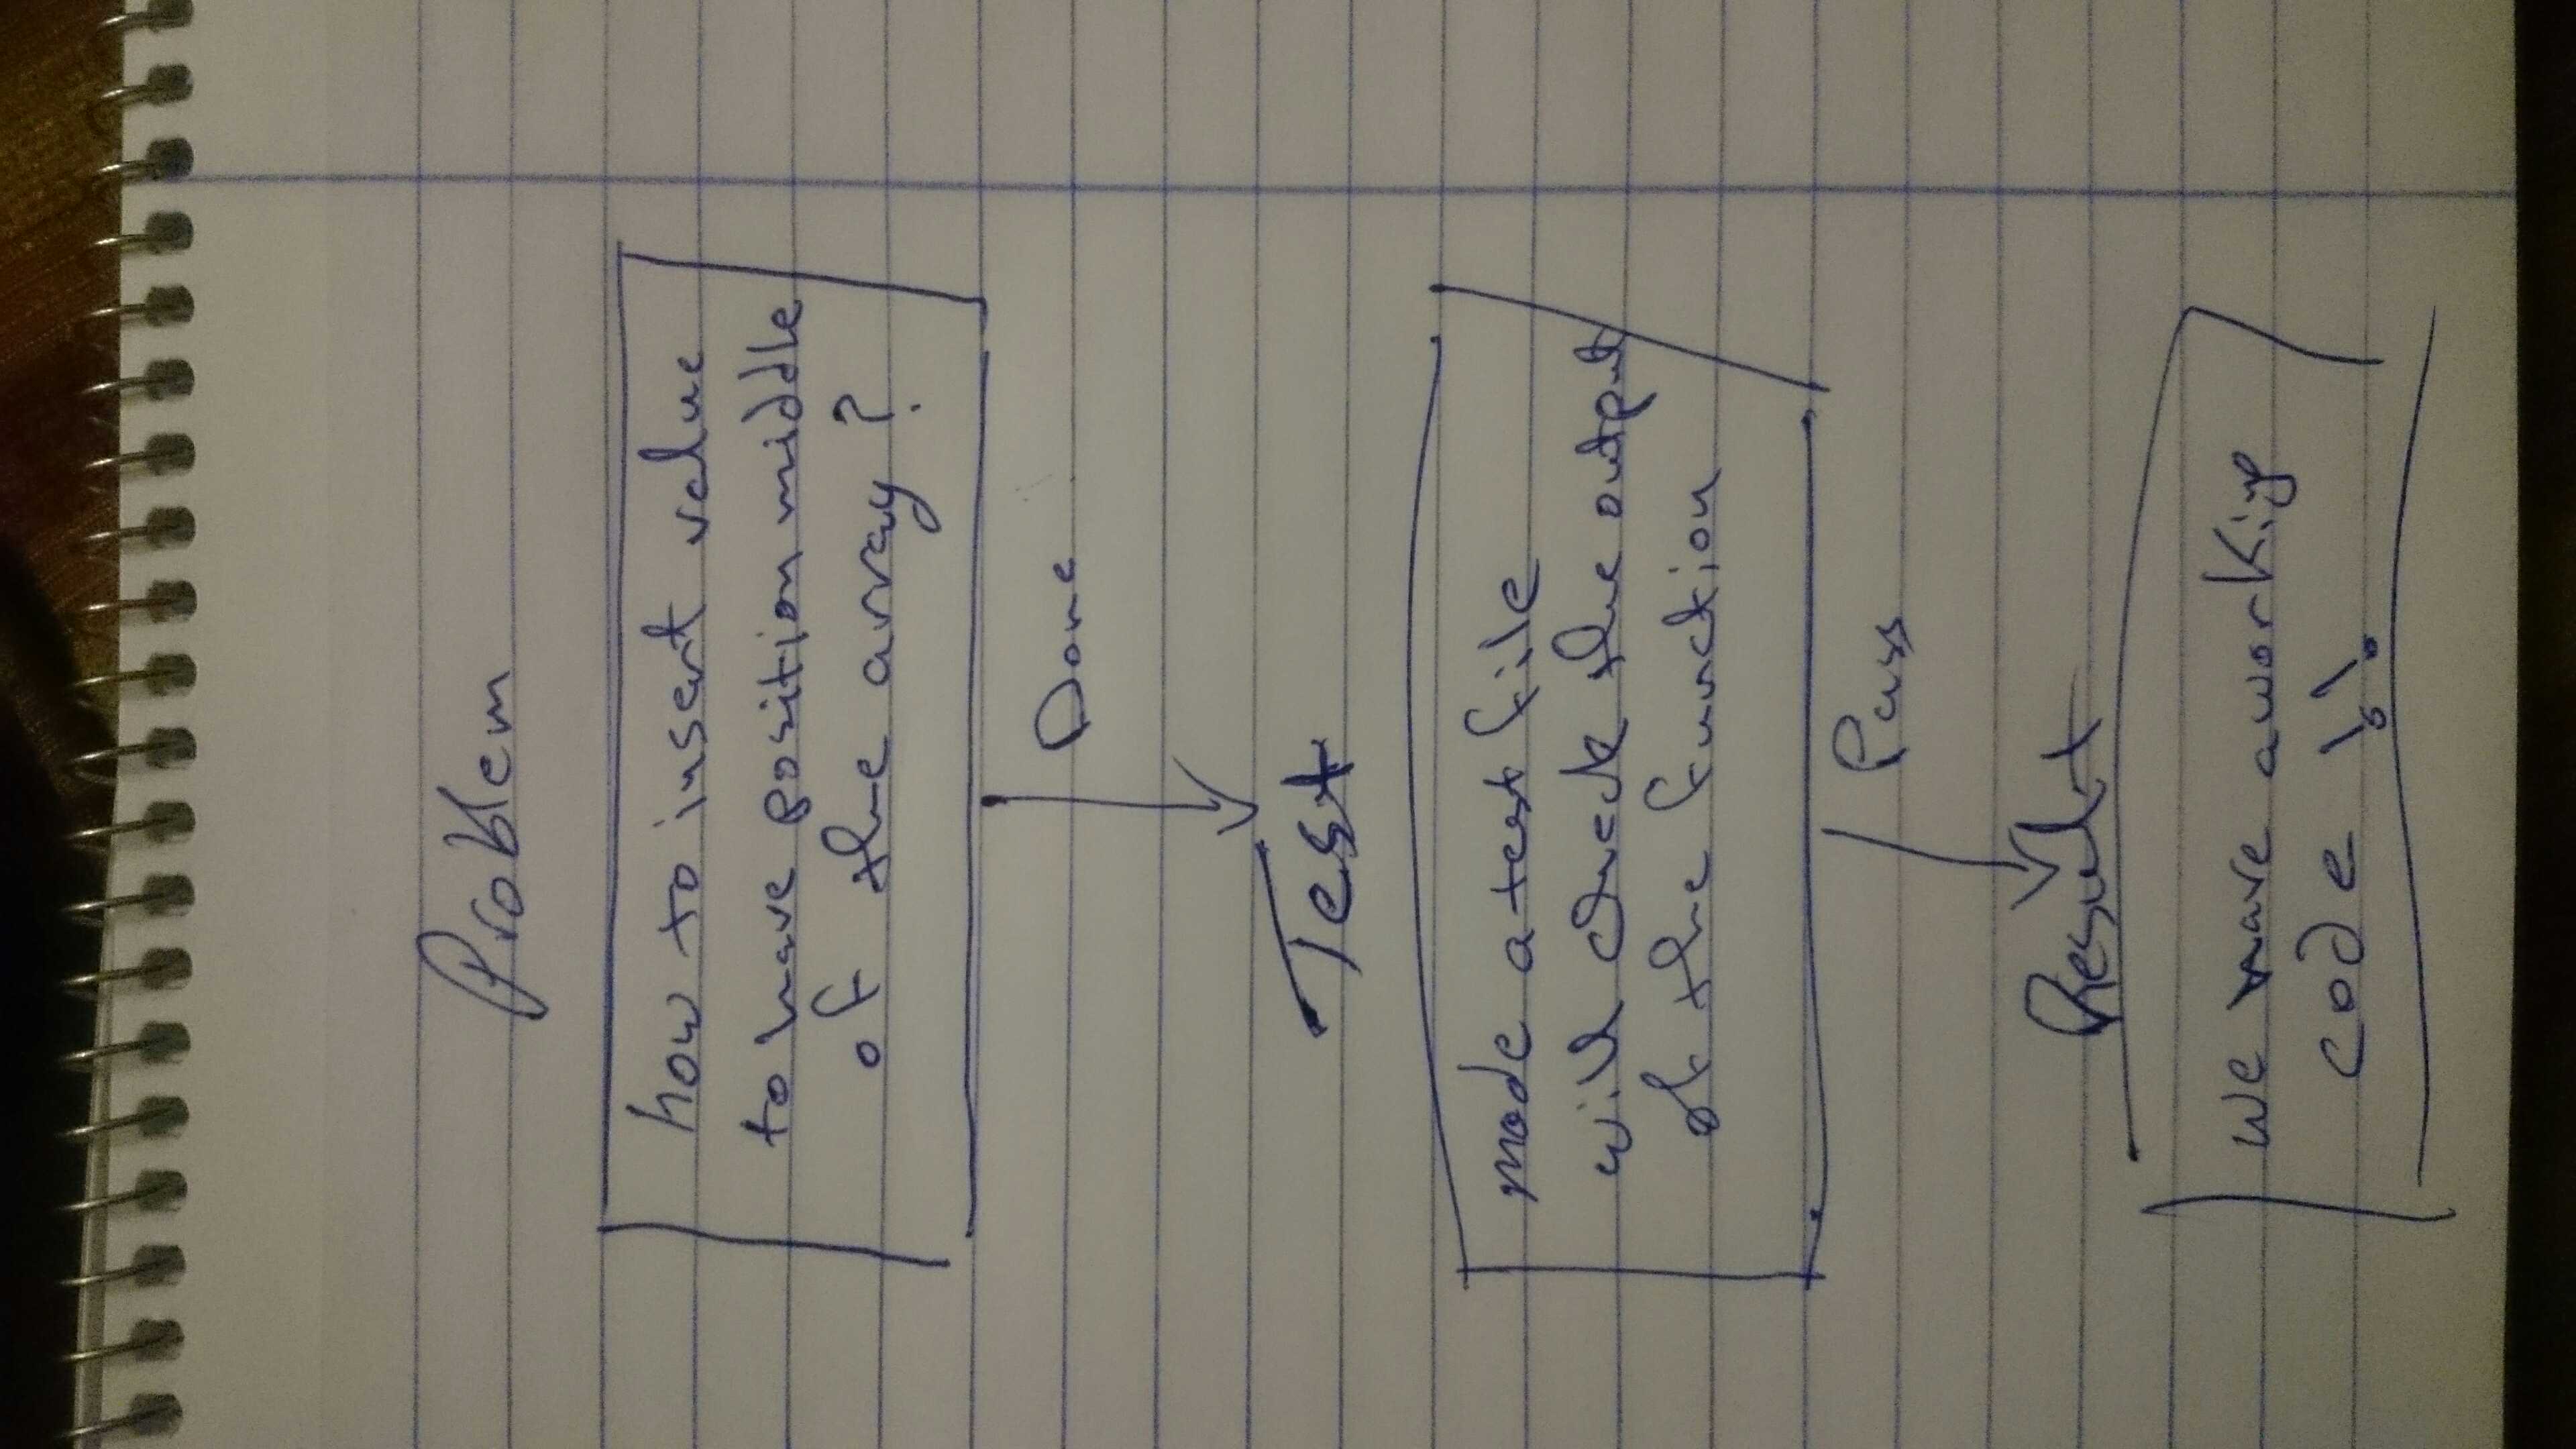 Problem
how to insert value
to have position middle
of the array ?
Done
Test
made a test file
will check the output
of the function
Pass
Result
we have a working
code !!